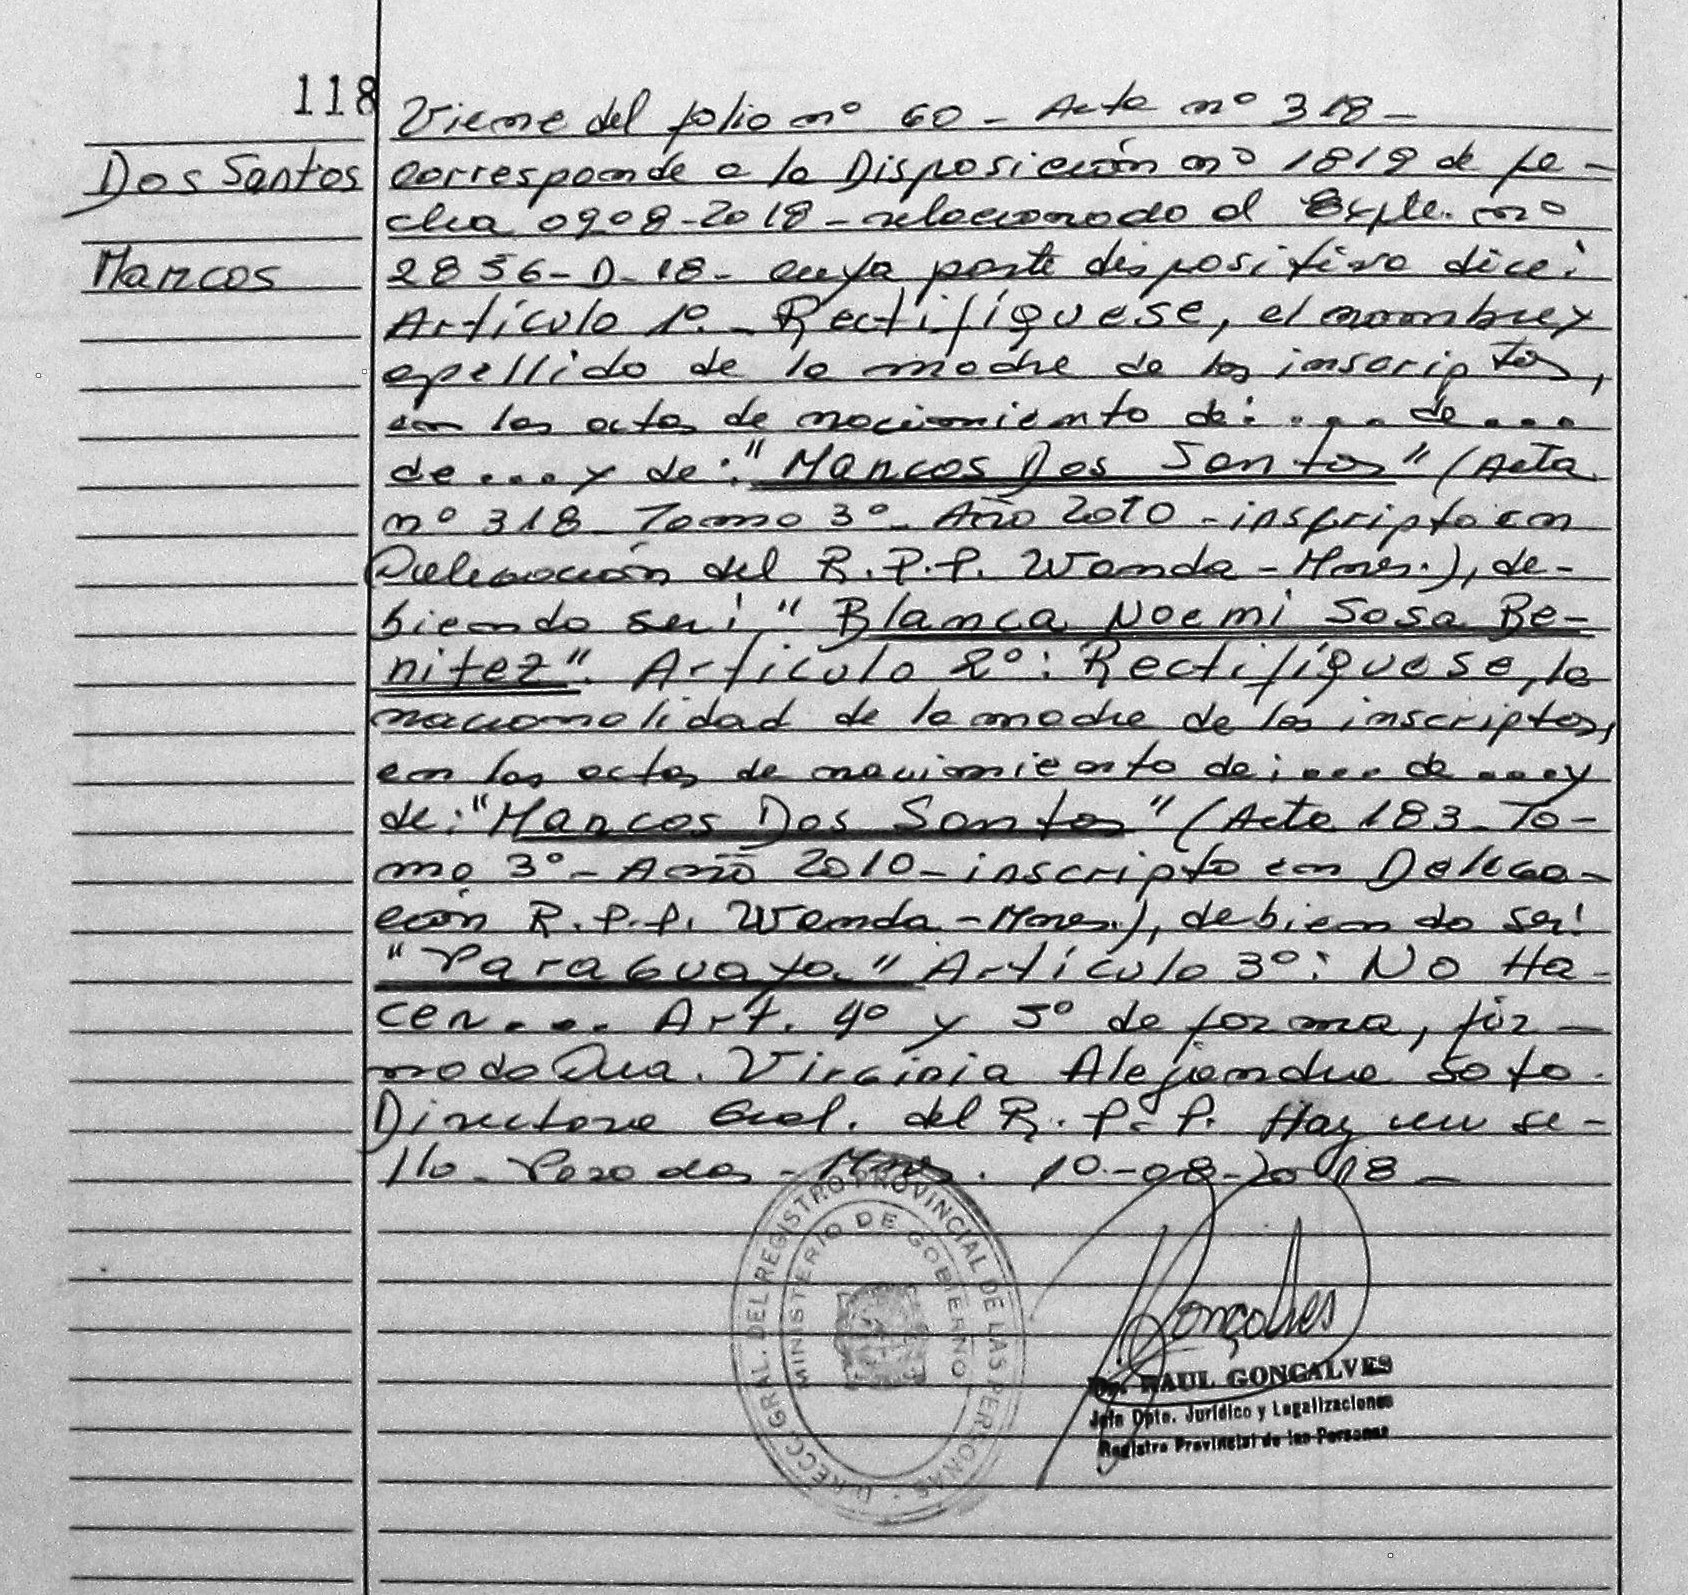 118
Dos Santos
Marcos
Viene del folio nº 60 - Acta nº 318 -
corresponde a la Disposición nº 1819 de fe -
cha 0908-2018 - relacionado al Expte. nº
2856-D-18- cuya parte dispositiva dice:
Artículo 1º.- Rectifíquese, el nombre y
apellido de la madre de los inscriptos,
en las actas de nacimiento de: .... de ...
de .... y de: "Marcos Dos Santos" (Acta
nº 318 Tomo 3º - Año 2010 - inscripto en
Delegación del R.P.P. Wanda - Mnes.), de-
biendo ser: "Blanca Noemi Sosa Be-
nitez". Artículo 2º: Rectifíquese, la
nacionalidad de la madre de los inscriptos,
en las actas de nacimiento de: .... de ....y
de: "Marcos Dos Santos" (Acta 183 - To-
mo 3º - Año 2010 - inscripto en Delega-
ción R.P.P. Wanda - Mnes.), debiendo ser:
"Paraguaya" Artículo 3º: No Ha-
cer.... Art. 4º y 5º de forma, fir -
mado Dra. Virginia Alejandra Soto.
Directora Gral. del R.P.P. Hay un se-
llo - Posadas - Mnes. 10-08-2018 -
DIRECC. GRAL. DEL REGISTRO PROVINCIAL DE LAS PERSONAS
MINISTERIO DE GOBIERNO
Gonçalves
Dr. RAUL GONCALVES
Jefe Dpto. Jurídico y Legalizaciones
Registro Provincial de las Personas